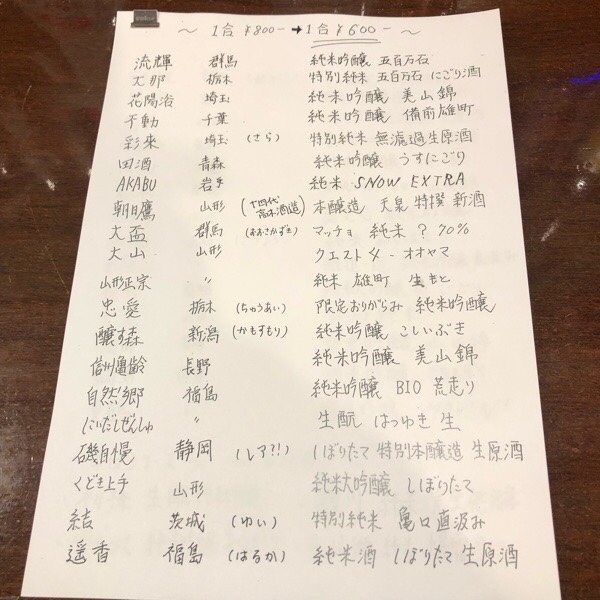 ～ 1合 ¥800- → 1合 ¥600- ～
流輝 群馬 純米吟醸 五百万石
大那 栃木 特別純米 五百万石 にごり酒
花陽浴 埼玉 純米吟醸 美山錦
不動 千葉 純米吟醸 備前雄町
彩來 埼玉 (さら) 特別純米 無濾過生原酒
田酒 青森 純米吟醸 うすにごり
AKABU 岩手 純米 SNOW EXTRA
朝日鷹 山形 (十四代 高木酒造) 本醸造 天泉 特撰 新酒
大盃 群馬 (おおさかずき) マッチョ 純米 ? 70%
大山 山形 クエスト4-オオヤマ
山形正宗 〃 純米 雄町 生もと
忠愛 栃木 (ちゅうあい) 限定おりがらみ 純米吟醸
醸す森 新潟 (かもすもり) 純米吟醸 こしいぶき
信州亀齢 長野 純米吟醸 美山錦
自然郷 福島 純米吟醸 BIO 荒走り
にいだしぜんしゅ 〃 生酛 はつゆき 生
磯自慢 静岡 (レア?!) しぼりたて 特別本醸造 生原酒
くどき上手 山形 純米大吟醸 しぼりたて
結 茨城 (ゆい) 特別純米 亀口直汲み
遥香 福島 (はるか) 純米酒 しぼりたて 生原酒